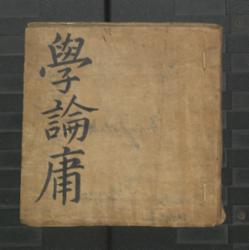 學論庸